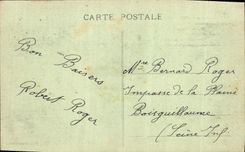 CARTE POSTALE
Bon
Baisers
Robert Roger
Mme Bernard Roger
Impasse de la Plaine
Boisguillaume
(Seine Inf.)